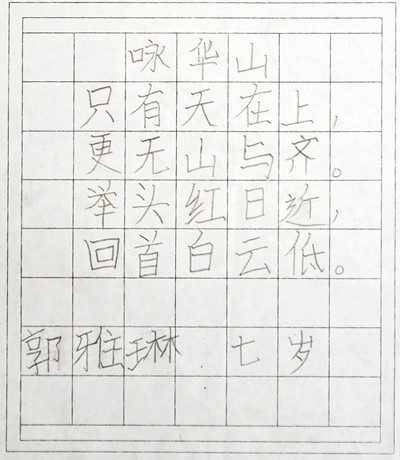 咏华山
只有天在上，
更无山与齐。
举头红日近，
回首白云低。
郭雅琳 七岁